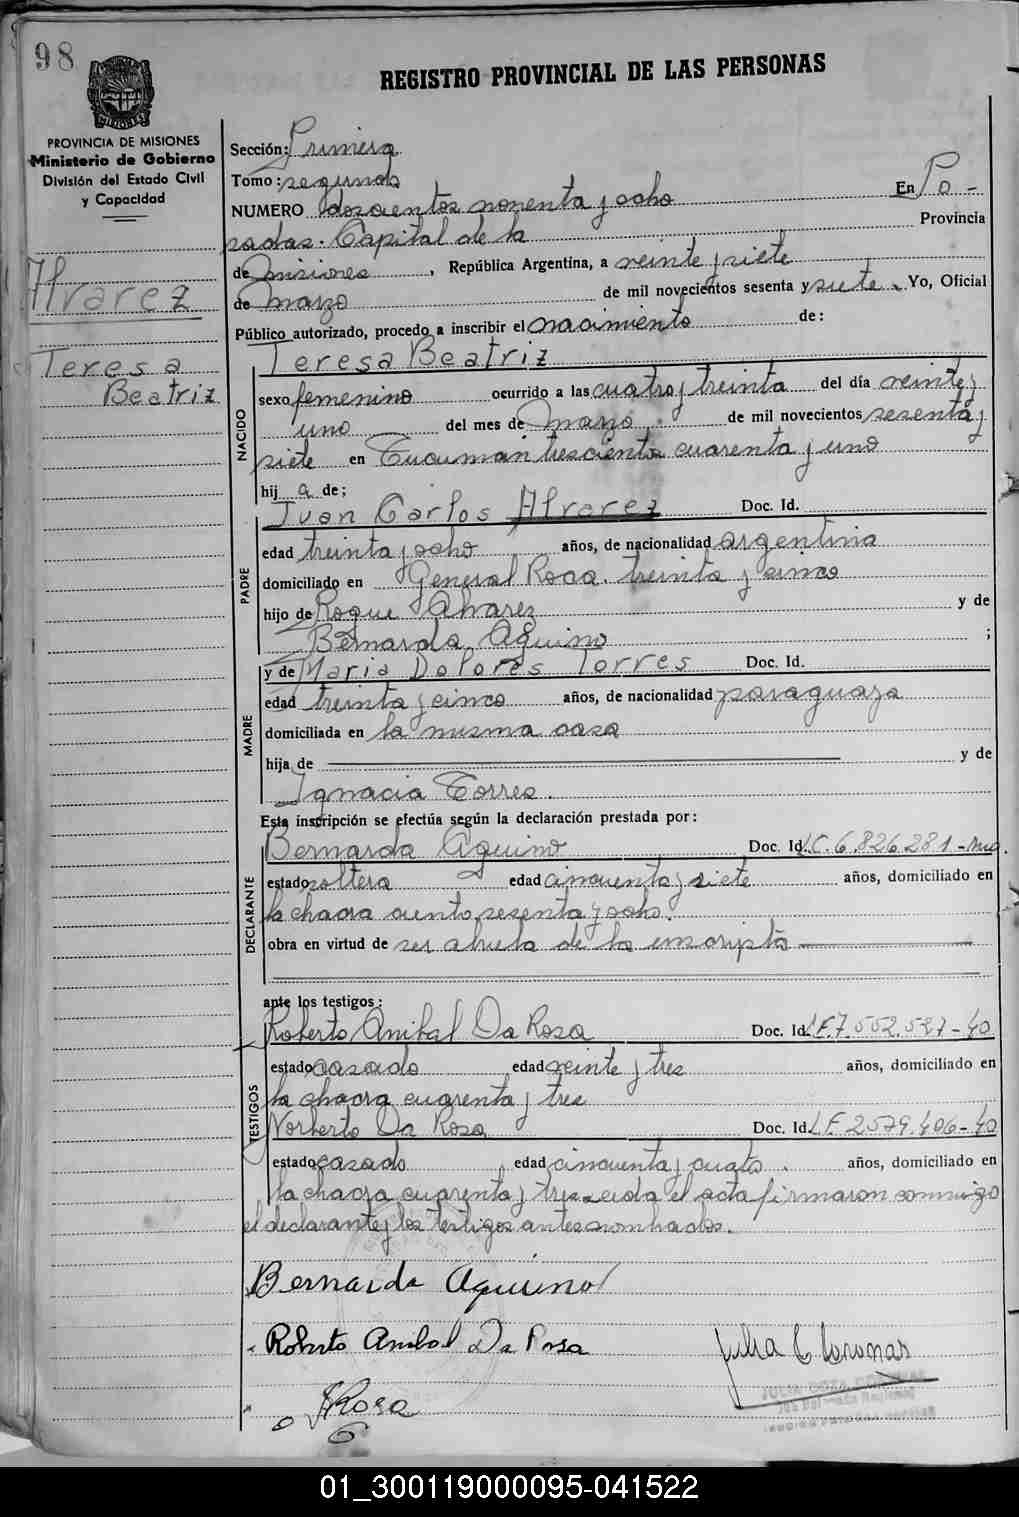 98
REGISTRO PROVINCIAL DE LAS PERSONAS
MISIONES
PROVINCIA DE MISIONES
Ministerio de Gobierno
División del Estado Civil
y Capacidad
Alvarez
Teresa
Beatriz
Sección: Primera
Tomo: segundo
NUMERO doscientos noventa y ocho En Po-
sadas. Capital de la Provincia
de Misiones, República Argentina, a veinte y siete
de marzo de mil novecientos sesenta y siete. Yo, Oficial
Público autorizado, procedo a inscribir el nacimiento de:
Teresa Beatriz
NACIDO
sexo femenino ocurrido a las cuatro y treinta del día veinte y
uno del mes de marzo de mil novecientos sesenta y
siete en Tucuman trescientos cuarenta y uno
hij a de;
PADRE
Juan Carlos Alvarez Doc. Id.
edad treinta y ocho años, de nacionalidad argentina
domiciliado en General Roca. treinta y cinco
hijo de Roque Alvarez y de
Bernarda Aquino ;
MADRE
y de Maria Dolores Torres Doc. Id.
edad treinta y cinco años, de nacionalidad paraguaya
domiciliada en la misma casa
hija de y de
Ignacia Torres.
Esta inscripción se efectúa según la declaración prestada por:
DECLARANTE
Bernarda Aquino Doc. Id. L.C. 6.826.281-
estado soltera edad cincuenta y siete años, domiciliado en
la chacra ciento sesenta y ocho.
obra en virtud de ser abuela de la inscripta
ante los testigos:
TESTIGOS
Roberto Anibal Da Rosa Doc. Id. L.E. 7.552.527-40
estado casado edad veinte y tres años, domiciliado en
la chacra cuarenta y tres
Norberto Da Rosa Doc. Id. L.E. 2579.406-40
estado casado edad cincuenta y cuatro. años, domiciliado en
la chacra cuarenta y tres. Leida el acta firmaron conmigo
el declarante y los testigos antes nombrados.
Bernarda Aquino
Roberto Anibal Da Rosa
Julia C Coronas
Rosa
01_300119000095-041522